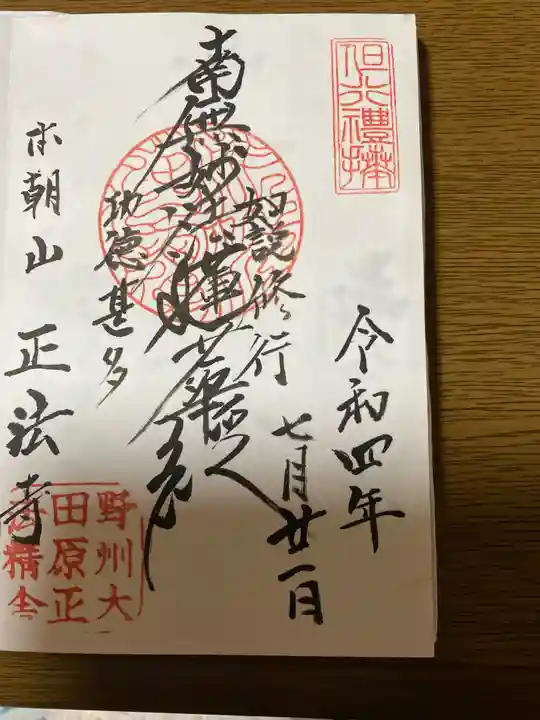 但行禮拝
令和四年
七月廿一日
如説修行
南無妙法蓮華経
功徳甚多
本朝山 正法寺
野州大
田原正
精舎